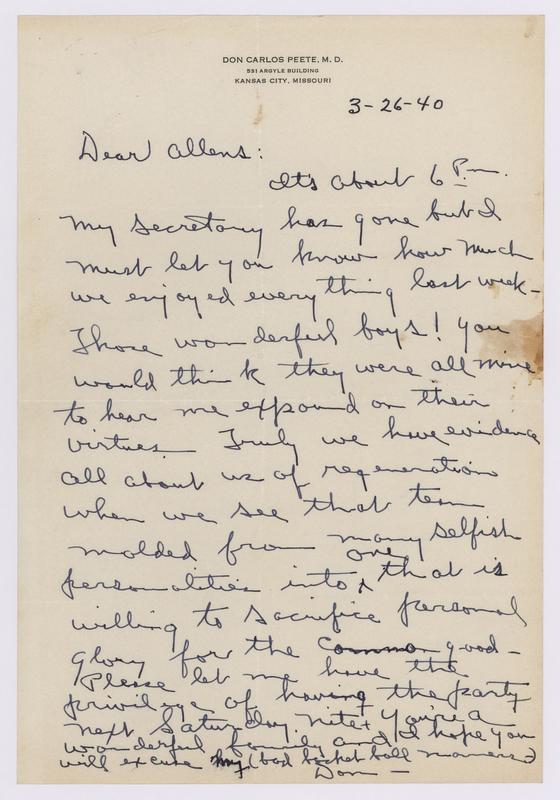 DON CARLOS PEETE, M. D.
531 ARGYLE BUILDING
KANSAS CITY, MISSOURI
3-26-40
Dear Allens:
It's about 6 P.m.
My secretary has gone but I
must let you know how much
we enjoyed everything last week-
Those wonderful boys! You
would think they were all mine
to hear me expound on their
virtues. Truly we have evidence
all about us of regeneration
when we see that team
molded from many selfish
personalities into one that is
willing to sacrifice personal
glory for the common good-
Please let me have the
privilege of having the party
next Saturday nite + You're a
wonderful family and I hope you
will excuse my (bad basket ball manners)
Don -